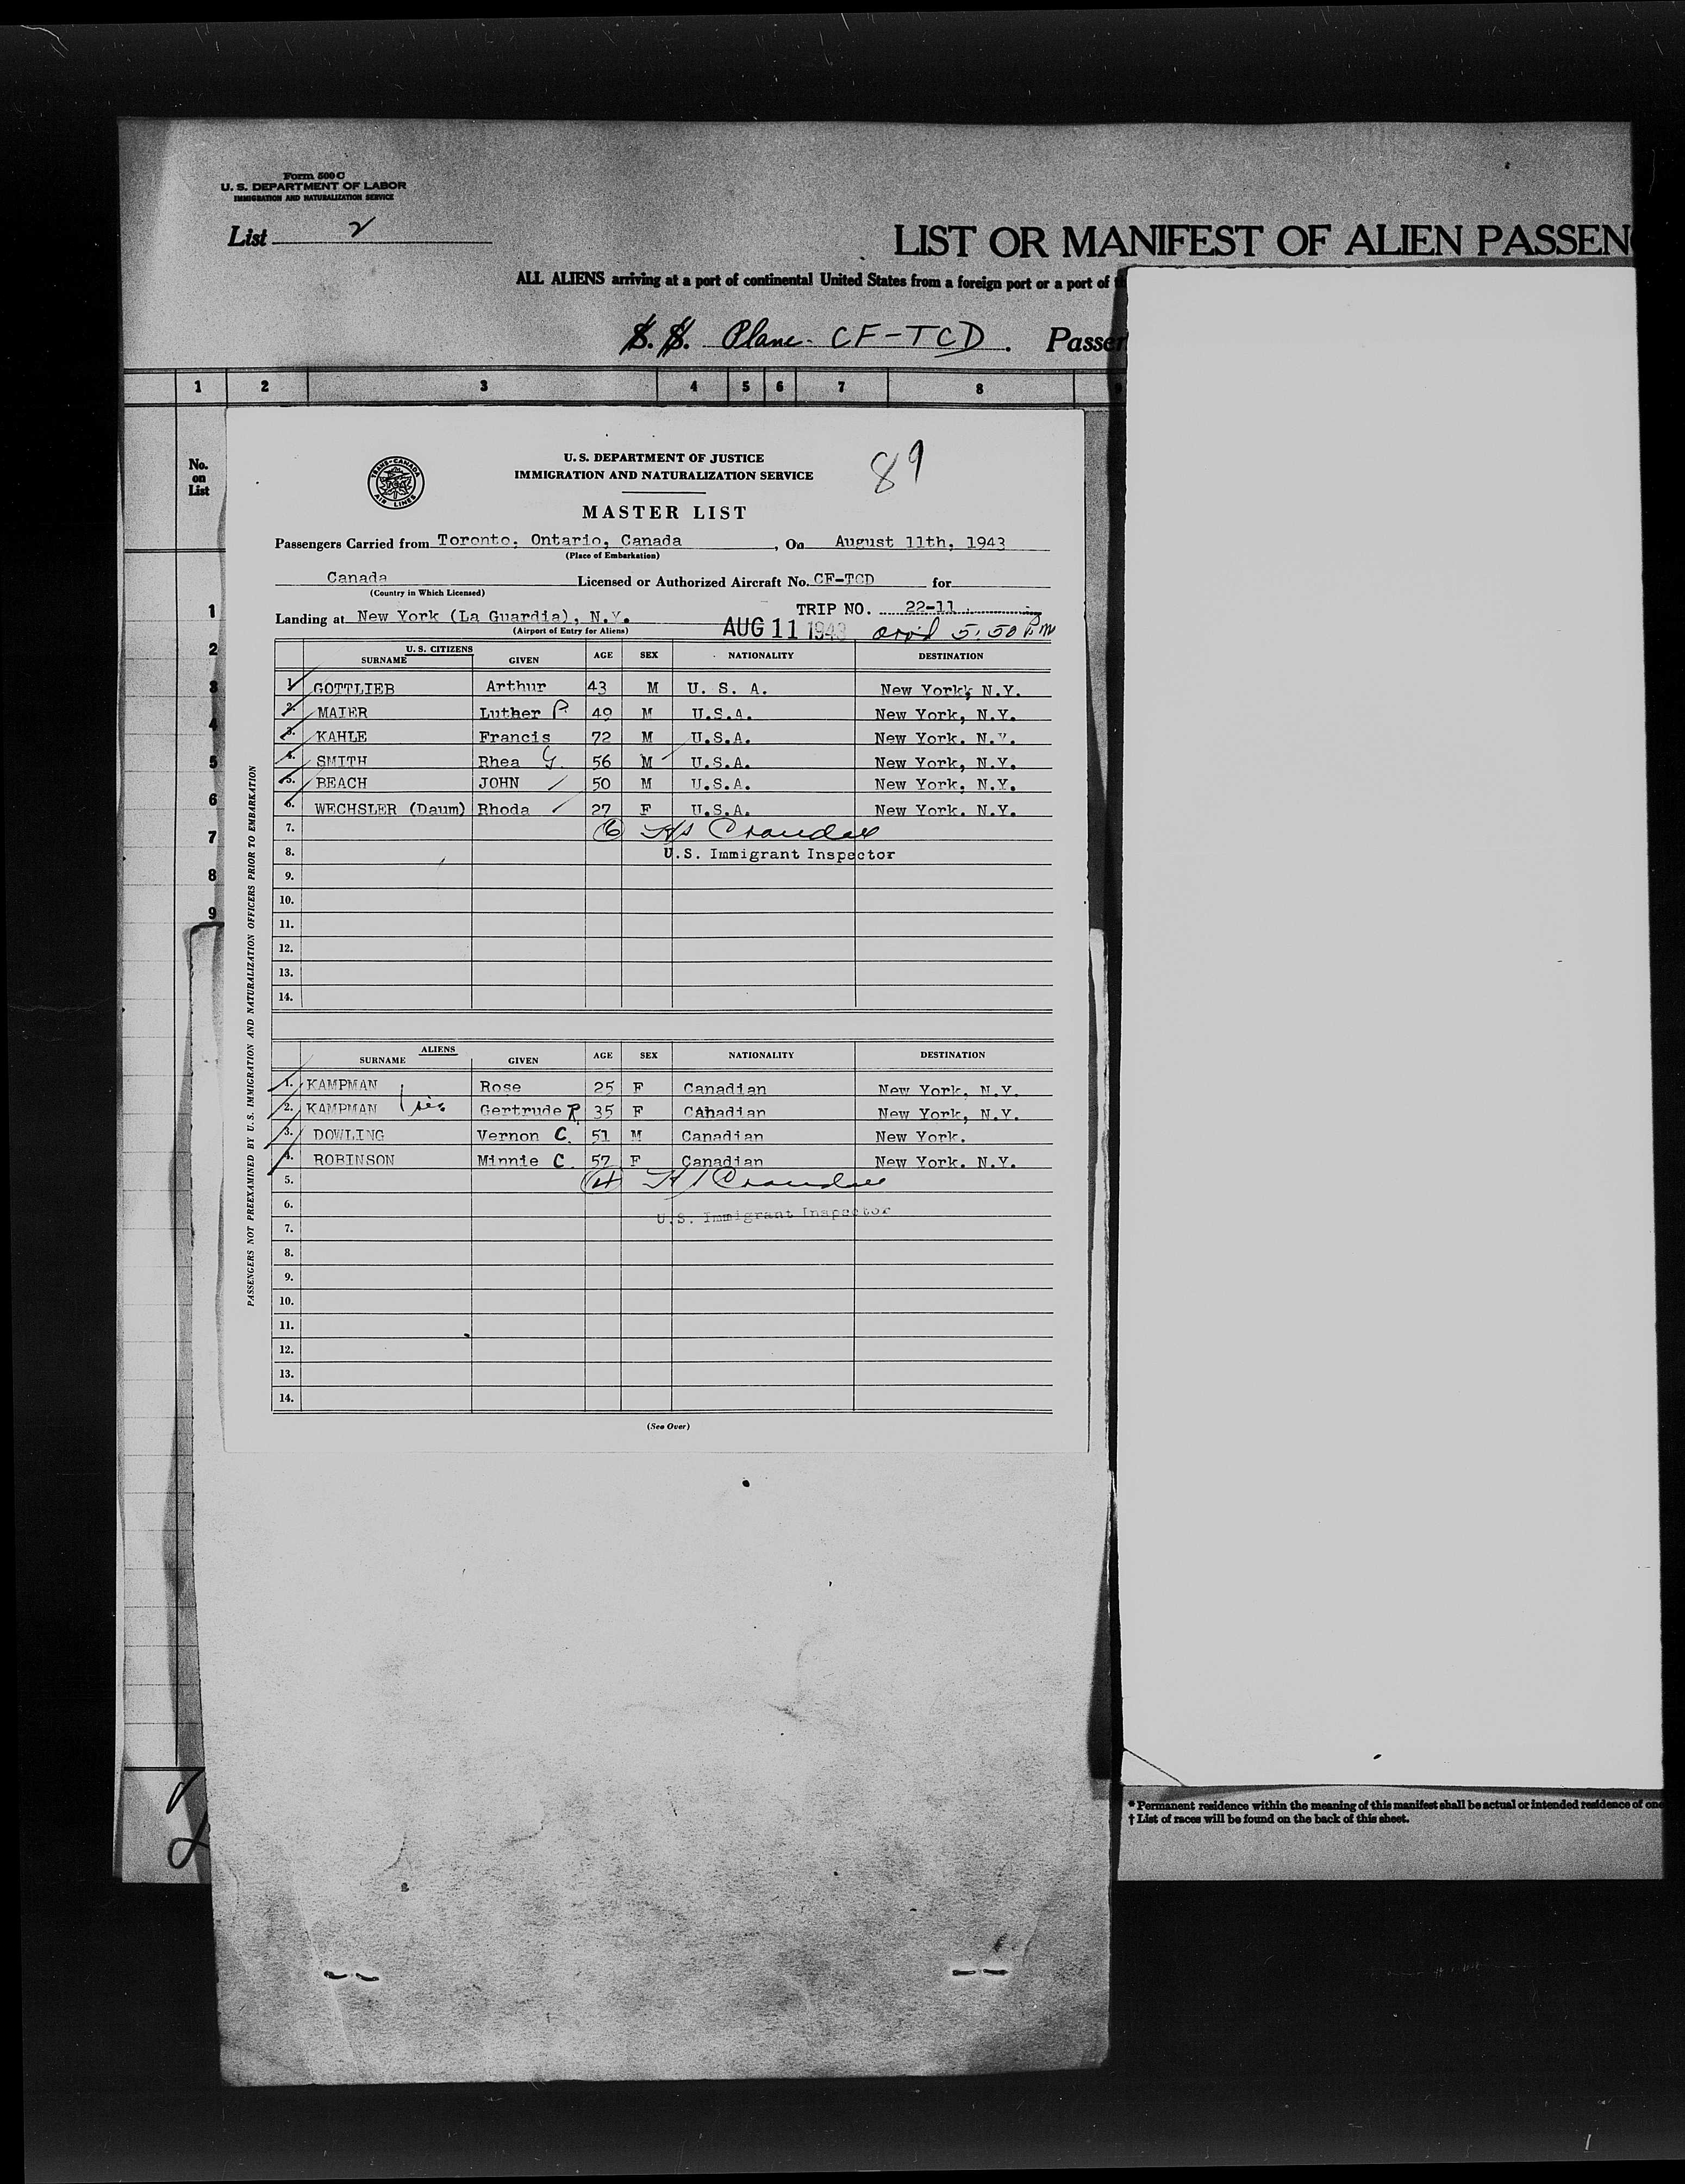 Form 500 C
U. S. DEPARTMENT OF LABOR
IMMIGRATION AND NATURALIZATION SERVICE
List 2
LIST OR MANIFEST OF ALIEN PASSEN
ALL ALIENS arriving at a port of continental United States from a foreign port or a port of
S. S. Plane. CF-TCD. Passen
1 2 3 4 5 6 7 8
No. on List
1
2
3
4
5
6
7
8
9
TRANS-CANADA AIR LINES
U. S. DEPARTMENT OF JUSTICE
IMMIGRATION AND NATURALIZATION SERVICE
89
MASTER LIST
Passengers Carried from Toronto, Ontario, Canada, On August 11th, 1943
(Place of Embarkation)
Canada Licensed or Authorized Aircraft No. CF-TCD for
(Country in Which Licensed)
TRIP NO. 22-11
Landing at New York (La Guardia), N.Y.
(Airport of Entry for Aliens)
AUG 11 1943 arr'd 5:50 P.M
U. S. CITIZENS
SURNAME GIVEN AGE SEX NATIONALITY DESTINATION
1. GOTTLIEB Arthur 43 M U. S. A. New York, N.Y.
2. MAIER Luther P. 49 M U.S.A. New York, N.Y.
3. KAHLE Francis 72 M U.S.A. New York. N.Y.
4. SMITH Rhea G. 56 M U.S.A. New York, N.Y.
5. BEACH JOHN 50 M U.S.A. New York, N.Y.
6. WECHSLER (Daum) Rhoda 27 F U.S.A. New York. N.Y.
7. (6) Crandall
8. U.S. Immigrant Inspector
9.
10.
11.
12.
13.
14.
ALIENS
SURNAME GIVEN AGE SEX NATIONALITY DESTINATION
1. KAMPMAN Rose 25 F Canadian New York, N.Y.
2. KAMPMAN sis Gertrude R. 35 F Canadian New York, N.Y.
3. DOWLING Vernon C. 51 M Canadian New York.
4. ROBINSON Minnie C. 57 F Canadian New York. N.Y.
5. (4) Crandall
6. U.S. Immigrant Inspector
7.
8.
9.
10.
11.
12.
13.
14.
(See Over)
PASSENGERS NOT PREEXAMINED BY U. S. IMMIGRATION AND NATURALIZATION OFFICERS PRIOR TO EMBARKATION
* Permanent residence within the meaning of this manifest shall be actual or intended residence of one
† List of races will be found on the back of this sheet.